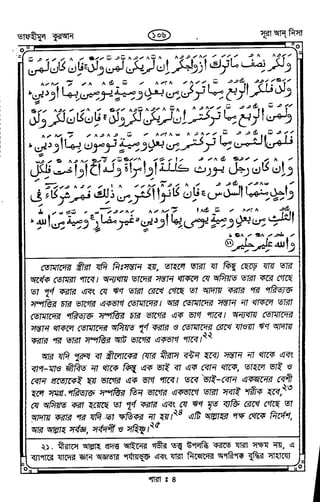 তাফহীমুল কুরআন
১০৬
সূরা আন্ নিসা
وَلَكُمْ نِصْفُ مَا تَرَكَ أَزْوَاجُكُمْ إِنْ لَّمْ يَكُنْ لَّهُنَّ وَلَدٌ ۚ فَإِنْ كَانَ لَهُنَّ
وَلَدٌ فَلَكُمُ الرُّبُعُ مِمَّا تَرَكْنَ مِنْ بَعْدِ وَصِيَّةٍ يُّوصِينَ بِهَا أَوْ دَيْنٍ ۚ
وَلَهُنَّ الرُّبُعُ مِمَّا تَرَكْتُمْ إِنْ لَّمْ يَكُنْ لَّكُمْ وَلَدٌ ۚ فَإِنْ كَانَ لَكُمْ وَلَدٌ
فَلَهُنَّ الثُّمُنُ مِمَّا تَرَكْتُمْ مِّنْ بَعْدِ وَصِيَّةٍ تُوصُونَ بِهَا أَوْ دَيْنٍ ۗ
وَإِنْ كَانَ رَجُلٌ يُّورَثُ كَلٰلَةً أَوِ امْرَأَةٌ وَّلَهُ أَخٌ أَوْ أُخْتٌ فَلِكُلِّ
وَاحِدٍ مِّنْهُمَا السُّدُسُ ۚ فَإِنْ كَانُوا أَكْثَرَ مِنْ ذٰلِكَ فَهُمْ شُرَكَاءُ فِي
الثُّلُثِ مِنْ بَعْدِ وَصِيَّةٍ يُّوصٰى بِهَا أَوْ دَيْنٍ ۙ غَيْرَ مُضَارٍّ ۚ وَصِيَّةً مِّنَ اللّٰهِ ۗ
وَاللّٰهُ عَلِيمٌ حَلِيمٌ ⑫
তোমাদের স্ত্রীরা যদি নিঃসন্তান হয়, তাহলে তারা যা কিছু ছেড়ে যায় তার
অর্ধেক তোমরা পাবে। অন্যথায় তাদের সন্তান থাকলে যে অসিয়ত তারা করে গেছে
তা পূর্ণ করার এবং যে ঋণ তারা রেখে গেছে তা আদায় করার পর পরিত্যক্ত
সম্পত্তির চার ভাগের একভাগ তোমাদের। আর তোমাদের সন্তান না থাকলে তারা
তোমাদের পরিত্যক্ত সম্পত্তির চার ভাগের এক ভাগ পাবে। অন্যথায় তোমাদের
সন্তান থাকলে তোমাদের অসিয়ত পূর্ণ করার ও তোমাদের রেখে যাওয়া ঋণ আদায়
করার পর তারা সম্পত্তির আট ভাগের একভাগ পাবে।২২
আর যদি পুরুষ বা স্ত্রীলোকের (যার মীরাস বন্টন হবে) সন্তান না থাকে এবং
বাপ-মাও জীবিত না থাকে কিন্তু এক ভাই বা এক বোন থাকে, তাহলে ভাই ও
বোন প্রত্যেকেই ছয় ভাগের এক ভাগ পাবে। তবে ভাই-বোন একজনের বেশী
হলে সমগ্র পরিত্যক্ত সম্পত্তির তিন ভাগের একভাগে তারা সবাই শরীক হবে,২৩
যে অসিয়ত করা হয়েছে তা পূর্ণ করার এবং যে ঋণ মৃত ব্যক্তি রেখে গেছে তা
আদায় করার পর যদি তা ক্ষতিকর না হয়।২৪ এটি আল্লাহর পক্ষ থেকে নির্দেশ,
আর আল্লাহ সর্বজ্ঞ, সর্বদর্শী ও সহিষ্ণু।২৫
২১. মীরাসে আল্লাহ প্রদত্ত আইনের গভীর তত্ত্ব উপলব্ধি করতে যারা সক্ষম নয়, এ
ব্যাপারে যাদের জ্ঞান অজ্ঞতার পর্যায়ভুক্ত এবং যারা নিজেদের অপরিপক্ব বুদ্ধির সাহায্যে
পারা : ৪